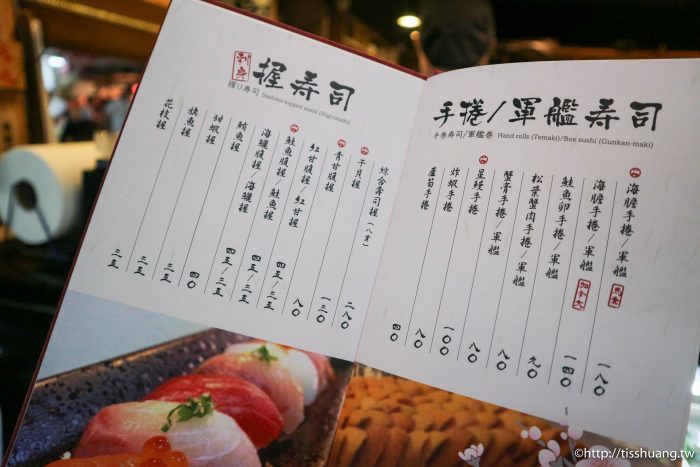 刺身
握寿司
握り寿司 Sashimi-topped sushi (Nigirizushi)
綜合壽司握(八貫) 二八〇
干貝握 一三〇
青甘握 八〇
紅甘腹握/紅甘握 八〇
鮭魚腹握/鮭魚握 四五/三五
海鱺腹握/海鱺握 四五/三五
鮪魚握 四五/三五
甜蝦握 四〇
旗魚握 三五
花枝握 三五
三五
手捲/軍艦寿司
手巻寿司/軍艦巻 Hand rolls (Temaki)/Box sushi (Gunkan-maki)
海膽手捲/軍艦 一八〇
海膽手捲/軍艦 加拿大 一四〇
鮭魚卵手捲/軍艦 九〇
松葉蟹肉手捲/軍艦 八〇
蟹膏手捲/軍艦 八〇
星鰻手捲 一〇〇
炸蝦手捲 八〇
蘆筍手捲 四〇
©http://tisshuang.tw